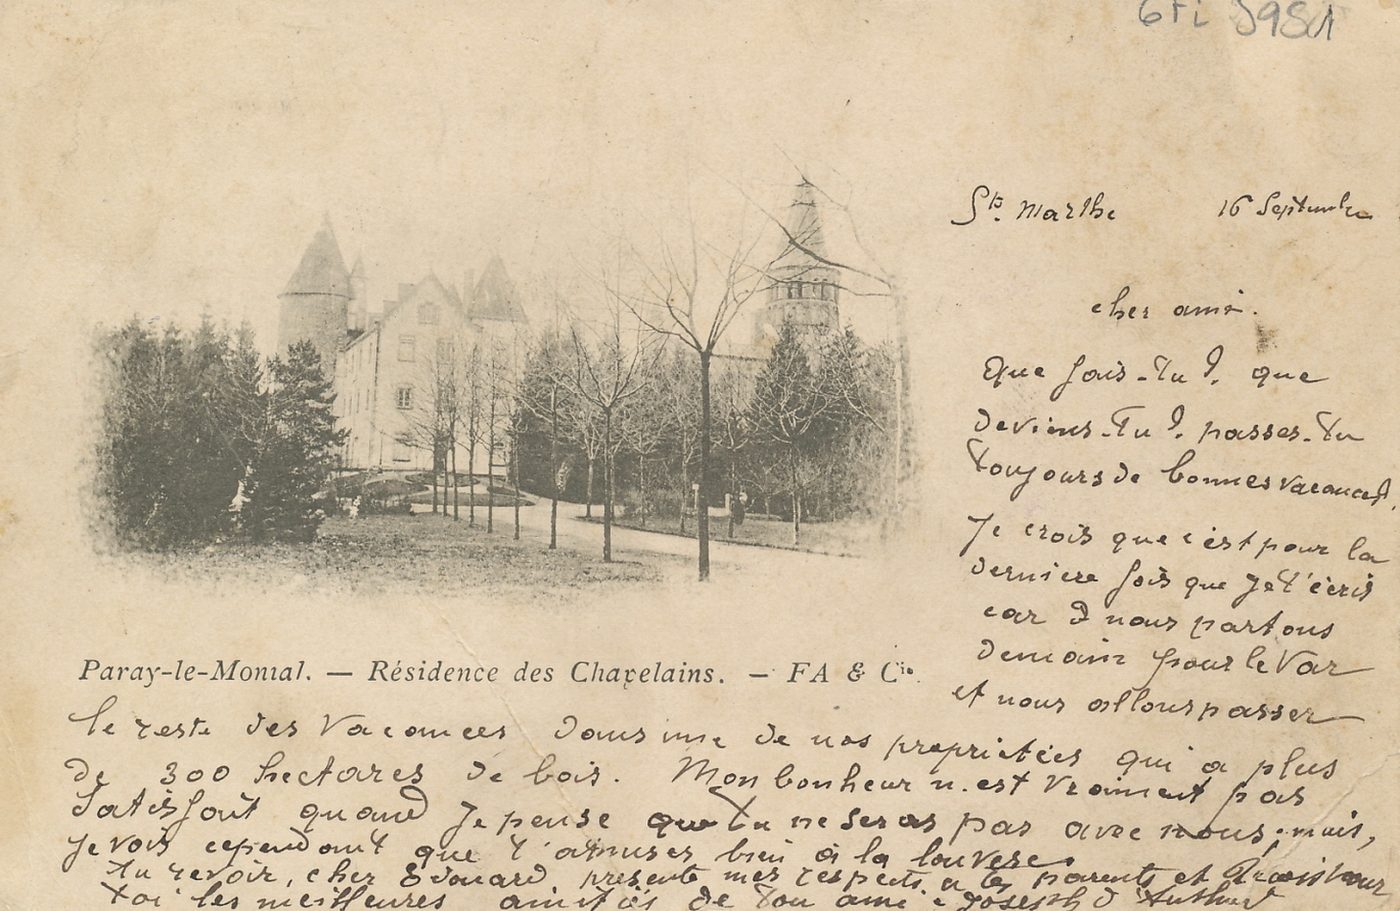 6Fi 5981
Ste. Marthe 16 Septembre
cher ami.
Que fais-tu ?. que
deviens-tu ?. passes-tu
toujours de bonnes vacances.
Je crois que c'est pour la
derniere fois que je t'écris
car nous partons
demain pour le Var
et nous allons passer
Paray-le-Monial. — Résidence des Chapelains. — FA & Cie.
le reste des vacances dans une de nos propriétées qui a plus
de 300 hectares de bois. Mon bonheur n'est vraiment pas
satisfait quand je pense que tu ne seras pas avec nous, mais,
je vois cependant que t'amuses bien à la louvere.
Au revoir, cher Edouard, presente mes respects a tes parents et
toi les meilleures amitiés de ton ami Joseph d'